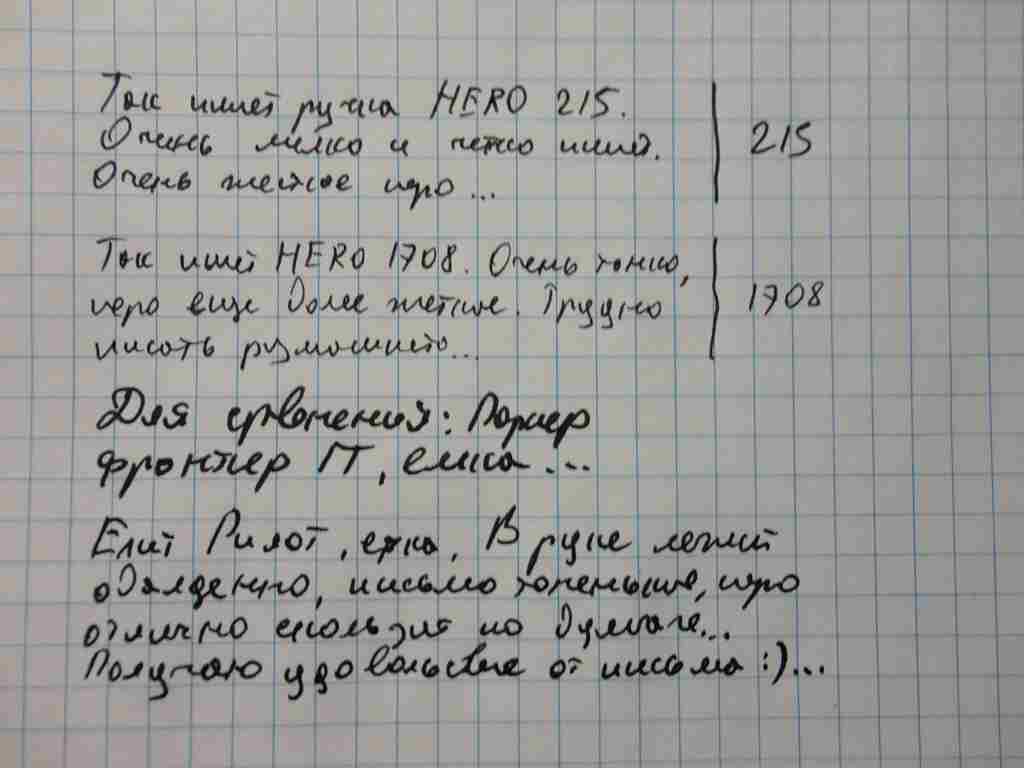 Так пишет ручка HERO 215.
Очень мелко и четко пишет.
Очень жесткое перо...
215
Так пишет HERO 1708. Очень тонко,
перо еще более жесткое. Трудно
писать размашисто...
1708
Для сравнения: Паркер
фронтир ГТ, емка...
Елит Пилот, ефка. В руке лежит
обалденно, письмо тоненькое, перо
отлично скользит по бумаге...
Получаю удовольствие от письма :)...